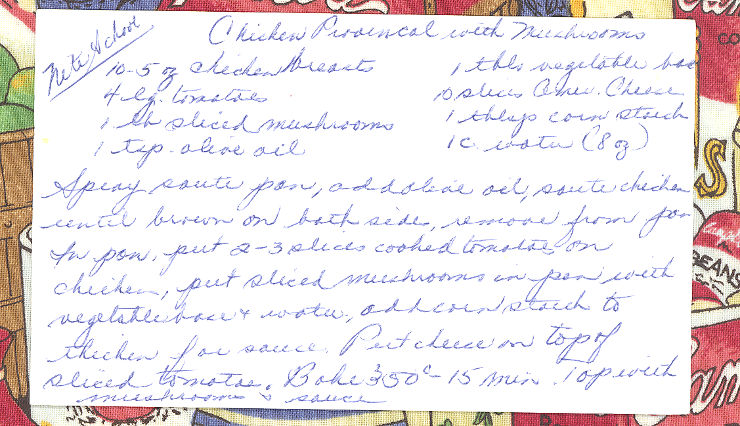 Nite School
Chicken Provincal with Mushrooms
10-5 oz chicken breasts
4 lg. tomatoes
1 lb sliced mushrooms
1 tsp. olive oil
1 tbls vegetable bas
10 slices Amer. Cheese
1 tblsp corn starch
1 c. water (8 oz)
Spray saute pan, add olive oil, saute chicken
until brown on both side, remove from pan
In pan, put 2-3 slices cooked tomatoe on
chicken, put sliced mushrooms in pan with
vegetable base & water, add corn starch to
thicken for sauce. Put cheese on top of
sliced tomatoe. Bake 350° - 15 min. Top with
mushrooms & sauce
BEANS